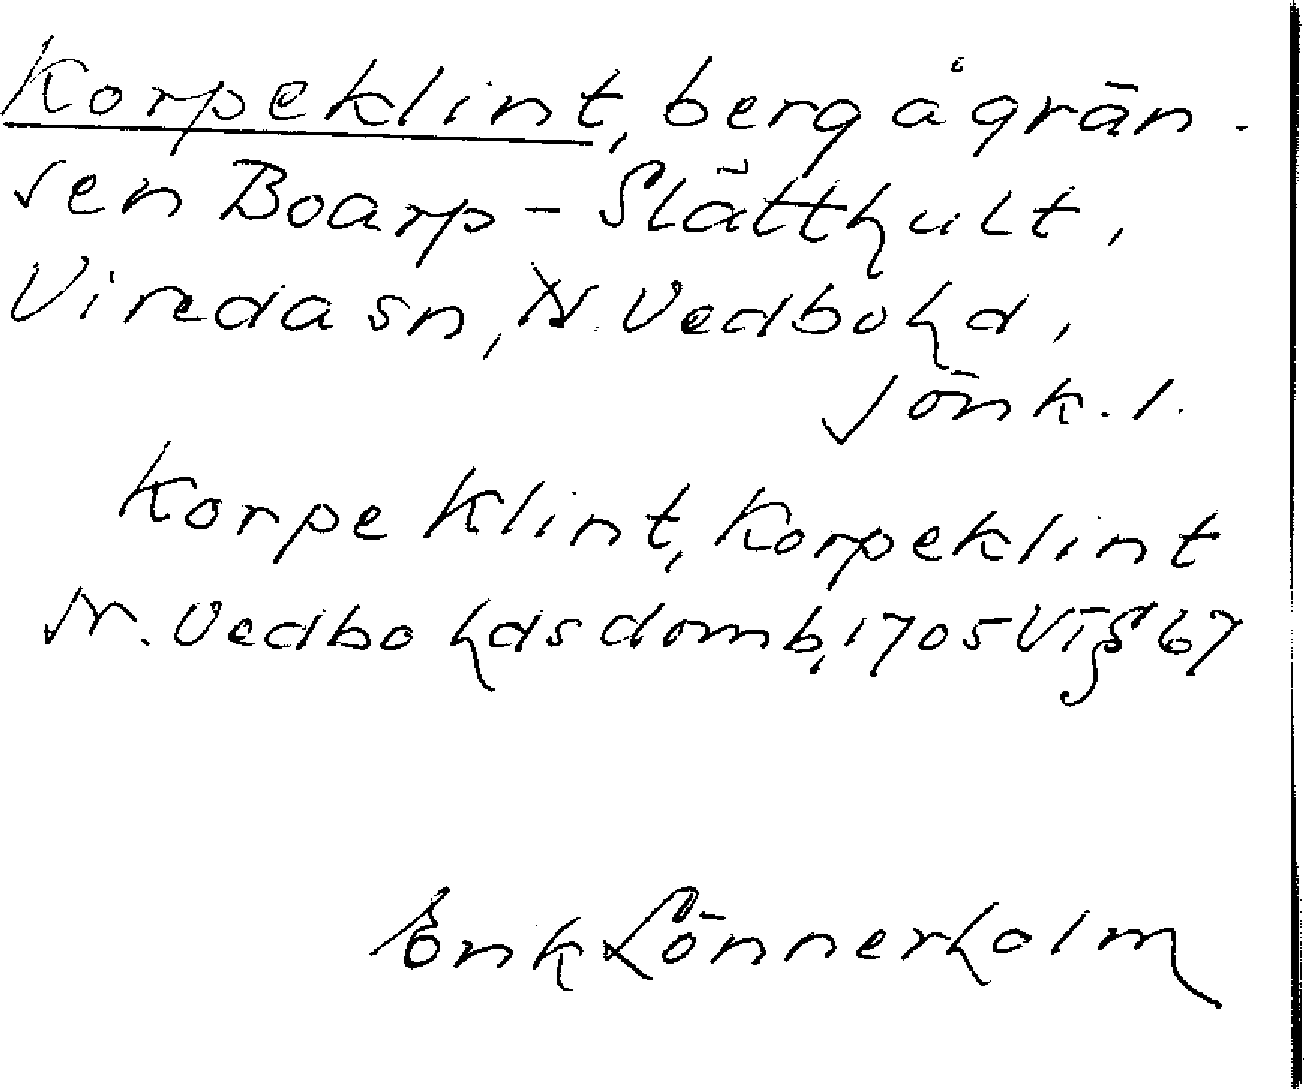 Korpeklint, berg å grän-
sen Boarp - Slätthult,
Vireda sn, N. Vedbo hd,
Jönk. l.
Korpe Klint, Korpeklint
N. Vedbo hds domb, 1705 VT § 67
Erik Lönnerholm